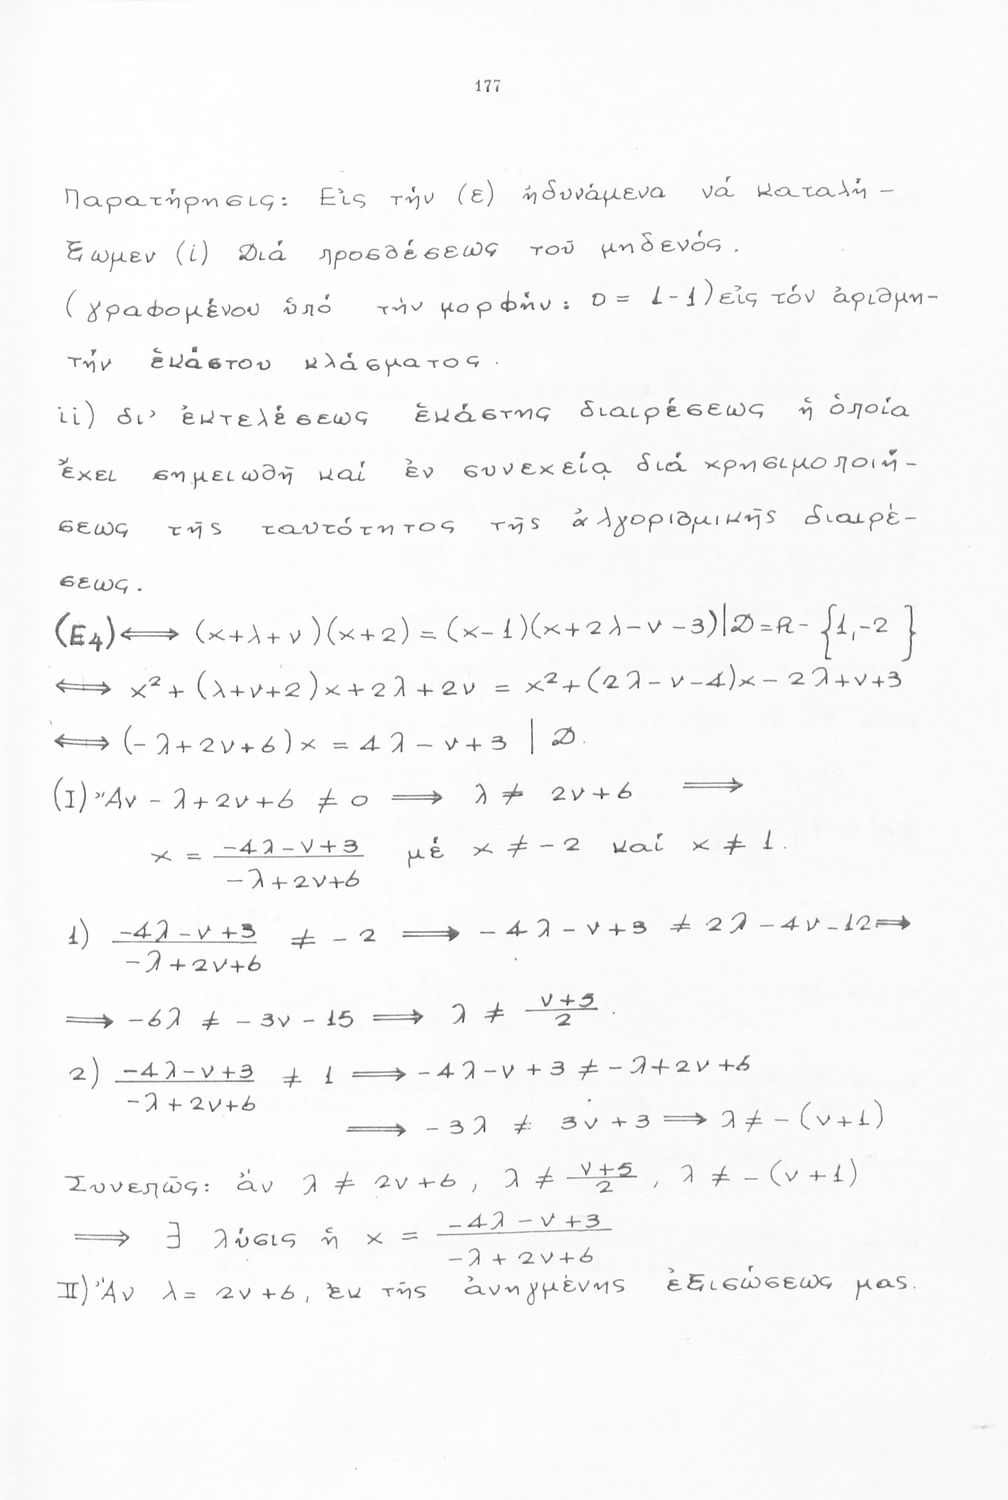 177
Παρατήρησις: Εἰς τήν (ε) ἠδυνάμενα νά καταλή-
ξωμεν (i) Διά προσθέσεως τοῦ μηδενός.
(γραφομένου ὑπό τήν μορφήν: 0 = 1-1) εἰς τόν ἀριθμη-
τήν ἑκάστου κλάσματος.
ii) δι' ἐκτελέσεως ἑκάστης διαιρέσεως ἡ ὁποία
ἔχει σημειωθῆ καί ἐν συνεχείᾳ διά χρησιμοποιή-
σεως τῆς ταυτότητος τῆς ἀλγοριθμικῆς διαιρέ-
σεως.
(E4) ⟺ (x+λ+ν)(x+2) = (x-1)(x+2λ-ν-3)|D=R-{1,-2}
⟺ x²+(λ+ν+2)x+2λ+2ν = x²+(2λ-ν-4)x-2λ+ν+3
⟺ (-λ+2ν+6)x = 4λ-ν+3 | D.
(I) Ἄν -λ+2ν+6 ≠ 0 ⟹ λ ≠ 2ν+6 ⟹
x = \frac{-4λ-ν+3}{-λ+2ν+6} μέ x ≠ -2 καί x ≠ 1.
1) \frac{-4λ-ν+3}{-λ+2ν+6} ≠ -2 ⟹ -4λ-ν+3 ≠ 2λ-4ν-12 ⟹
⟹ -6λ ≠ -3ν-15 ⟹ λ ≠ \frac{ν+5}{2}.
2) \frac{-4λ-ν+3}{-λ+2ν+6} ≠ 1 ⟹ -4λ-ν+3 ≠ -λ+2ν+6
⟹ -3λ ≠ 3ν+3 ⟹ λ ≠ -(ν+1)
Συνεπῶς: ἄν λ ≠ 2ν+6, λ ≠ \frac{ν+5}{2}, λ ≠ -(ν+1)
⟹ ∃ λύσις ἡ x = \frac{-4λ-ν+3}{-λ+2ν+6}
II) Ἄν λ = 2ν+6, ἐκ τῆς ἀνηγμένης ἐξισώσεως μας.